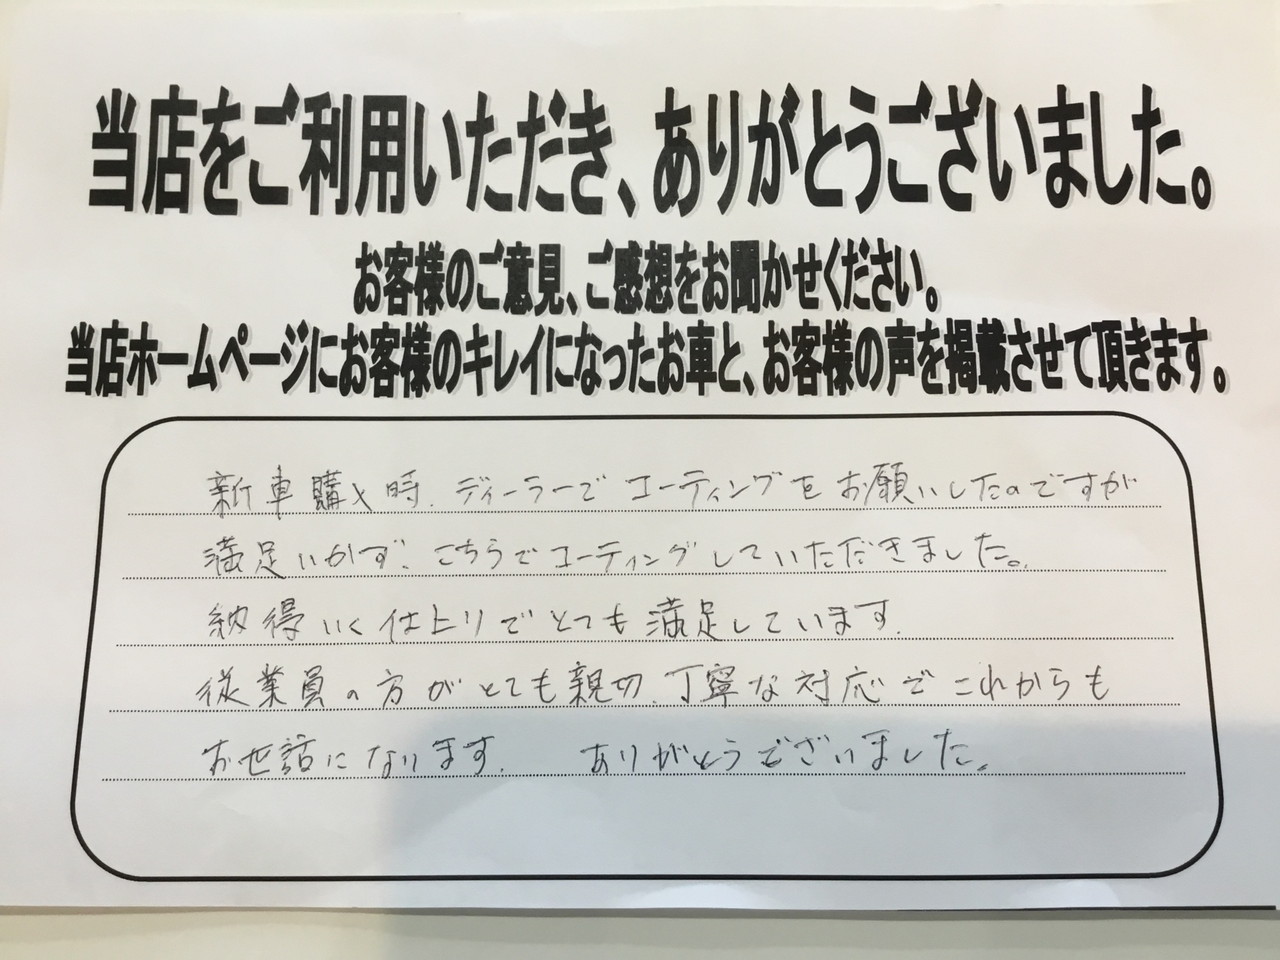 当店をご利用いただき、ありがとうございました。
お客様のご意見、ご感想をお聞かせください。
当店ホームページにお客様のキレイになったお車と、お客様の声を掲載させて頂きます。
新車購入時、ディーラーでコーティングをお願いしたのですが
満足いかず、こちらでコーティングしていただきました。
納得いく仕上りでとても満足しています。
従業員の方がとても親切、丁寧な対応でこれからも
お世話になります。 ありがとうございました。